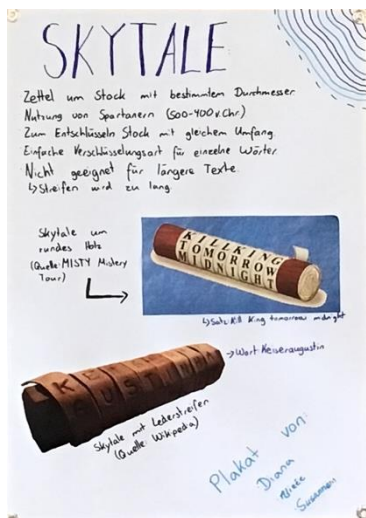 SKYTALE
Zettel um Stock mit bestimmtem Durchmesser
Nutzung von Spartanern (500-400 v. Chr)
Zum Entschlüsseln Stock mit gleichem Umfang
Einfache Verschlüsselungsart für einzelne Wörter
Nicht geeignet für längere Texte
↳ Streifen wird zu lang
Skytale um
rundes Holz
(Quelle: MISTY Mistery
Tour)
KILLKING
TOMORROW
MIDNIGHT
↳ Satz: Kill King tomorrow midnight
→ Wort: Keiseraugustin
Skytale mit Lederstreifen
(Quelle: Wikipedia)
Plakat von:
Diana